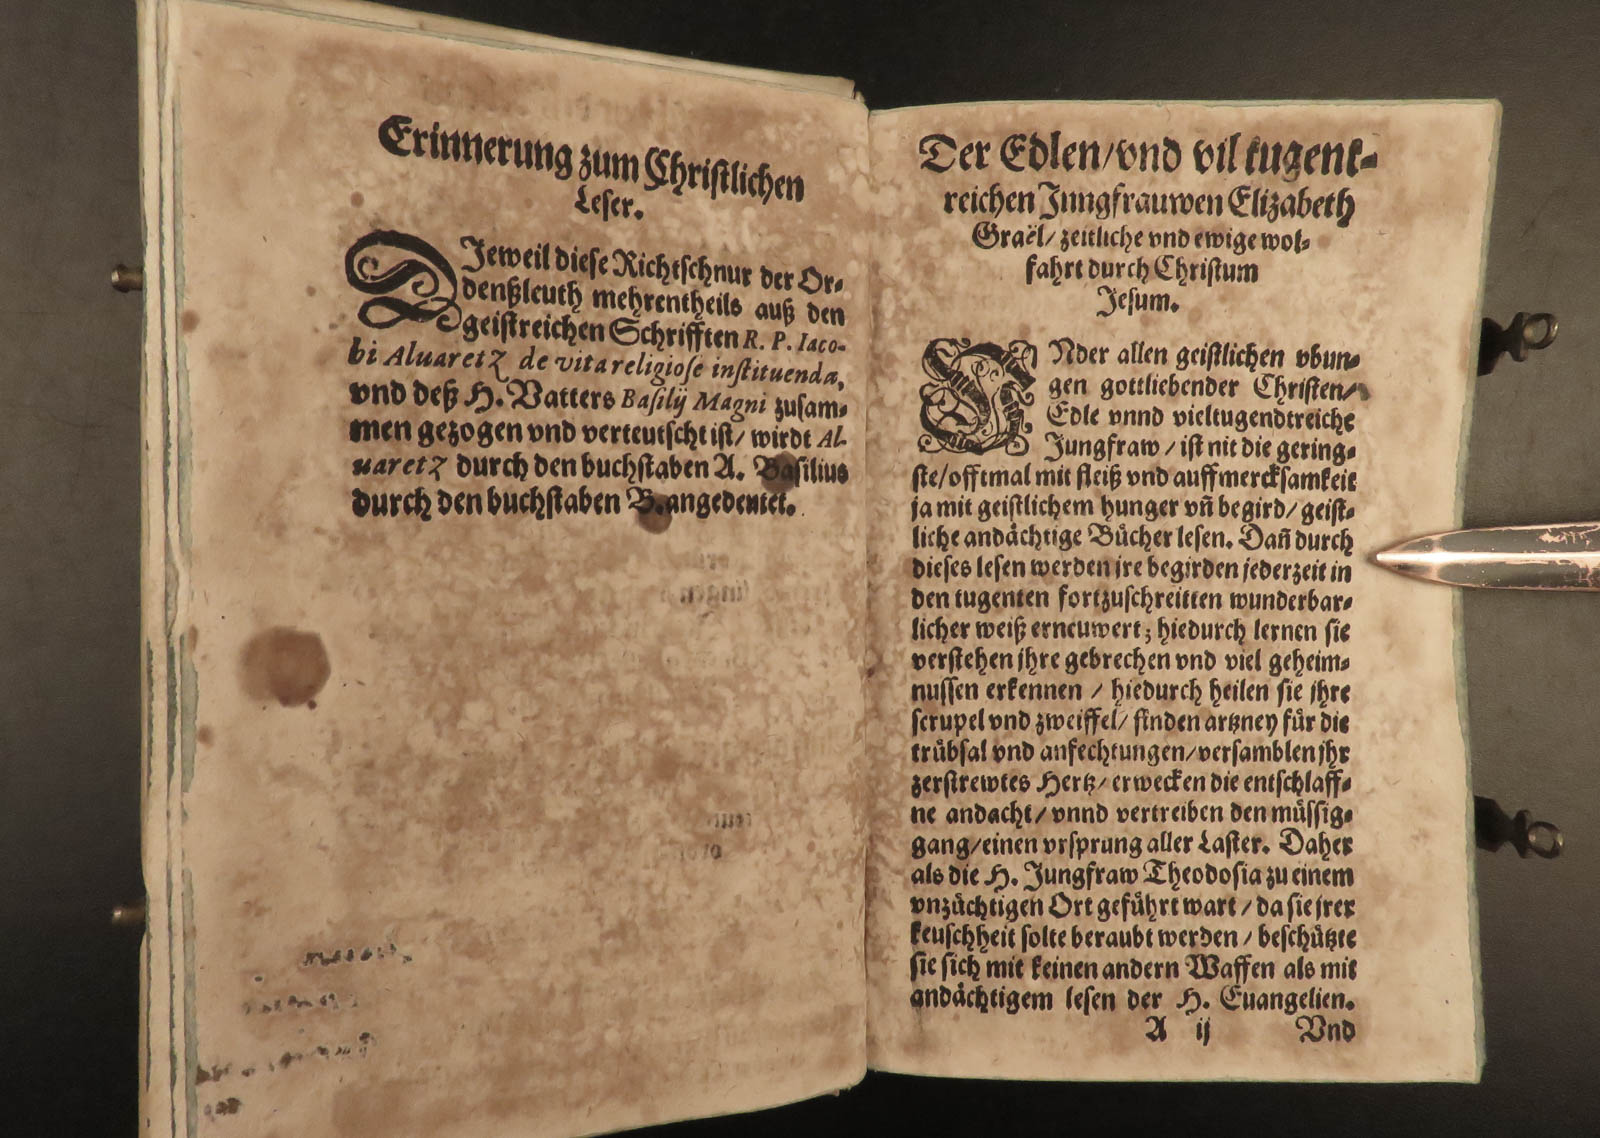 Erinnerung zum Christlichen
Leser.
DJeweil diese Richtschnur der Or-
denßleuth mehrentheils auß den
geistreichen Schrifften R. P. Iaco-
bi Aluaretz de vita religiose instituenda,
vnd deß H. Vatters Basilij Magni zusam-
men gezogen vnd verteutscht ist/ wirdt Al-
uaretz durch den buchstaben A. Basilius
durch den buchstaben B. angedeutet.
Der Edlen/ vnd vil tugent-
reichen Jungfrauwen Elizabeth
Graël/ zeitliche vnd ewige wol-
fahrt durch Christum
Jesum.
VNder allen geistlichen vbun-
gen gottliebender Christen/
Edle vnnd vieltugendtreiche
Jungfraw/ ist nit die gering-
ste/ offtmal mit fleiß vnd auffmercksamkeit
ja mit geistlichem hunger vñ begird/ geist-
liche andächtige Bücher lesen. Dañ durch
dieses lesen werden jre begirden jederzeit in
den tugenten fortzuschreitten wunderbar-
licher weiß erneuwert; hiedurch lernen sie
verstehen jhre gebrechen vnd viel geheim-
nussen erkennen/ hiedurch heilen sie jhre
scrupel vnd zweiffel/ finden artzney für die
trübsal vnd anfechtungen/ versamblen jhr
zerstrewtes Hertz/ erwecken die entschlaff-
ne andacht/ vnnd vertreiben den müssig-
gang/ einen vrsprung aller Laster. Daher
als die H. Jungfraw Theodosia zu einem
vnzüchtigen Ort geführt wart/ da sie jrer
keuschheit solte beraubt werden/ beschützte
sie sich mit keinen andern Waffen als mit
andächtigem lesen der H. Euangelien.
A ij Vnd